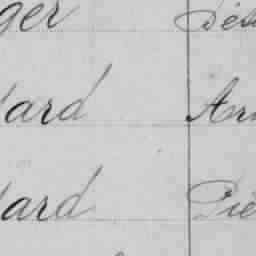 ger Dés
dard Arn
dard Pie